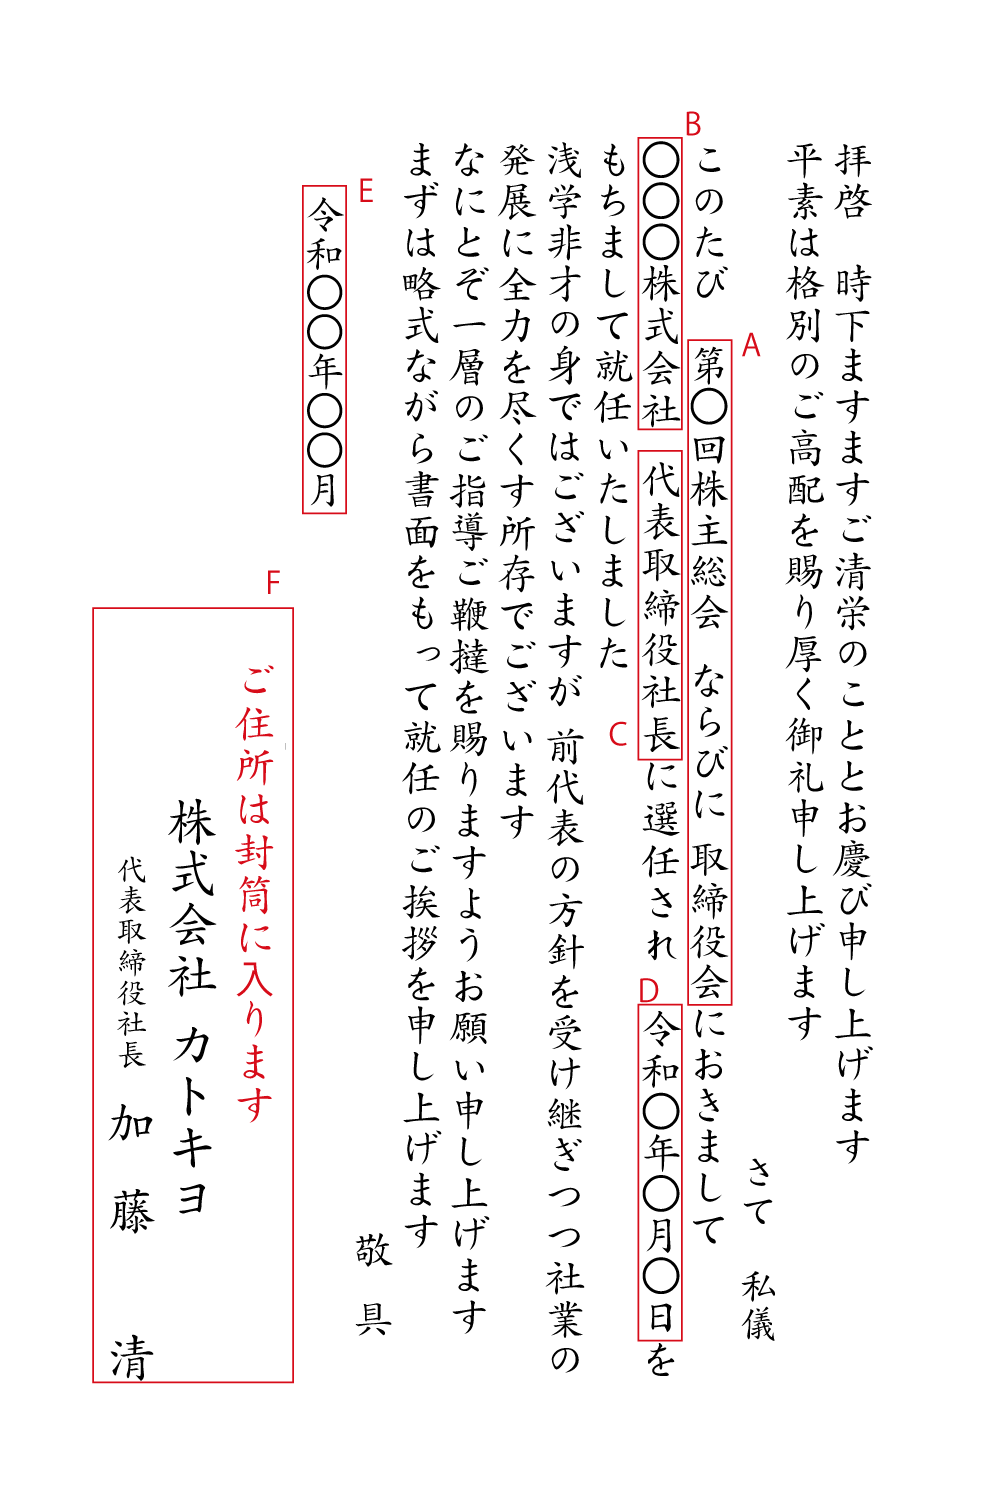 拝啓　時下ますますご清栄のこととお慶び申し上げます
平素は格別のご高配を賜り厚く御礼申し上げます
さて　私儀
A
このたび　第〇回株主総会　ならびに 取締役会におきまして
B
〇〇〇株式会社　代表取締役社長に選任され　令和〇年〇月〇日を
C
D
もちまして就任いたしました
浅学非才の身ではございますが 前代表の方針を受け継ぎつつ社業の
発展に全力を尽くす所存でございます
なにとぞ一層のご指導ご鞭撻を賜りますようお願い申し上げます
まずは略式ながら書面をもって就任のご挨拶を申し上げます
敬具
E
令和〇〇年〇〇月
F
ご住所は封筒に入ります
株式会社 カトキヨ
代表取締役社長　加藤　清